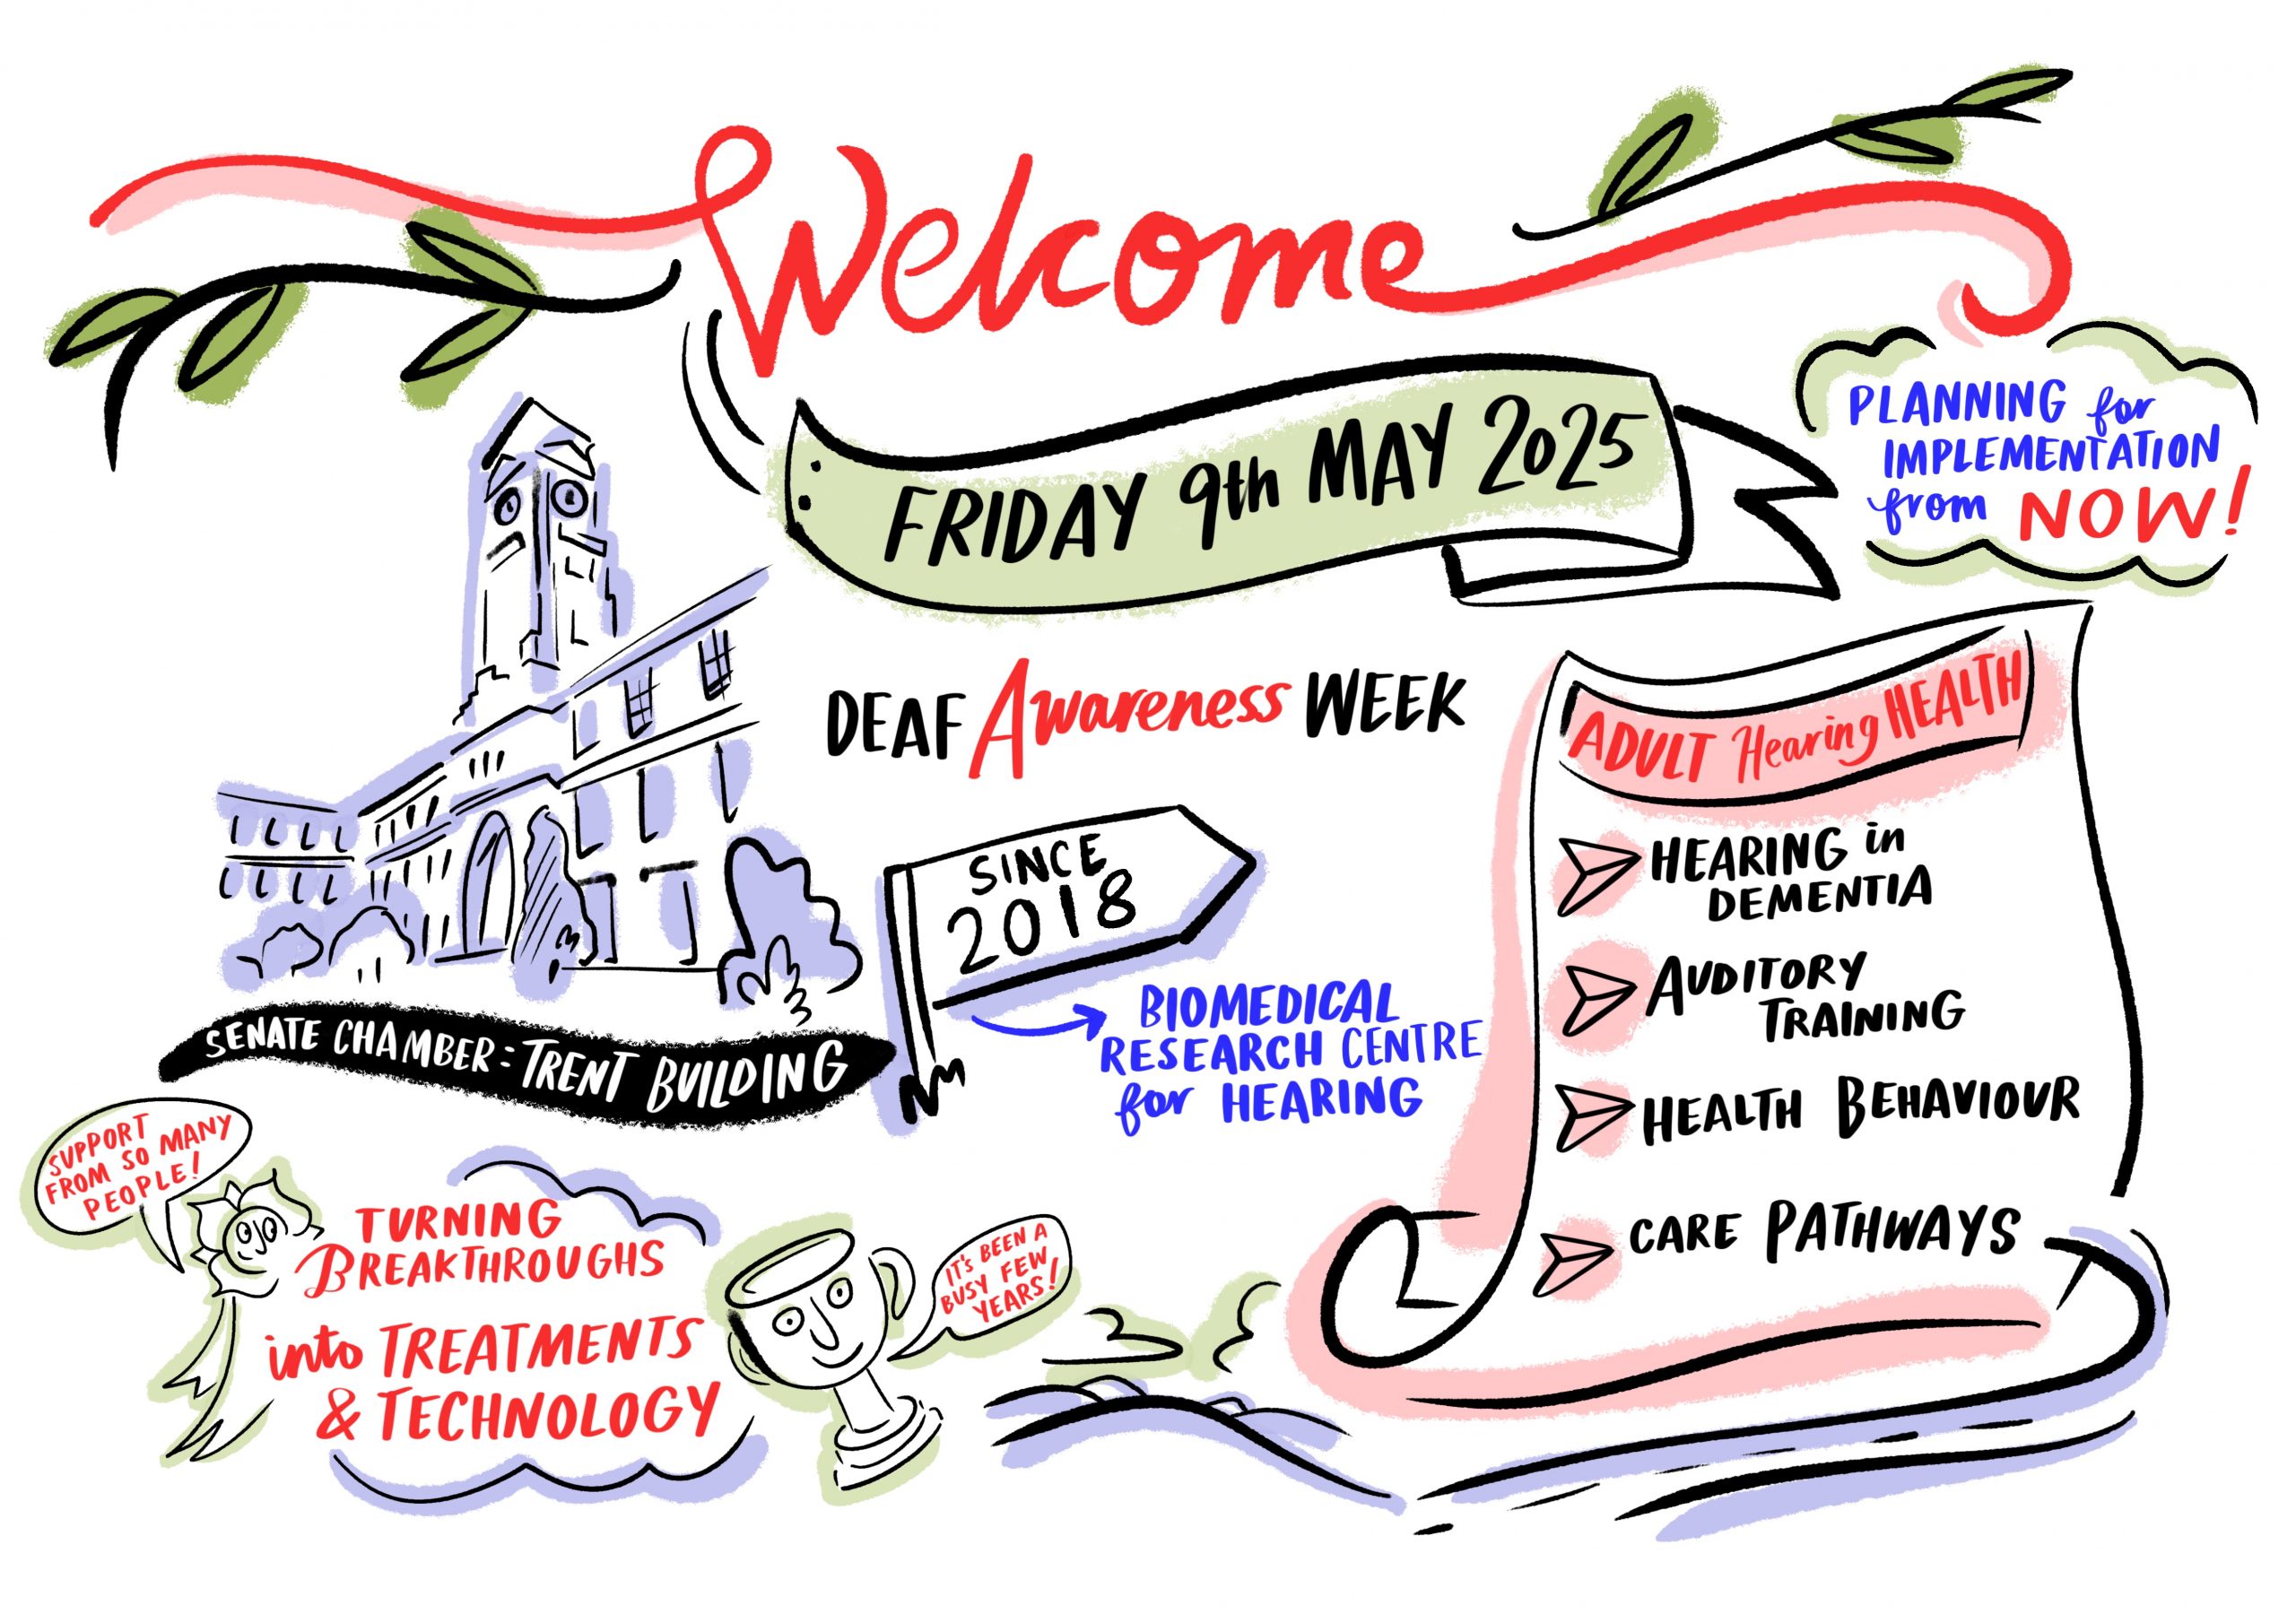 Welcome
FRIDAY 9th MAY 2025
PLANNING for
IMPLEMENTATION
from NOW!
DEAF Awareness WEEK
SINCE
2018
BIOMEDICAL
RESEARCH CENTRE
for HEARING
SENATE CHAMBER: TRENT BUILDING
ADULT Hearing HEALTH
HEARING in
DEMENTIA
AUDITORY
TRAINING
HEALTH BEHAVIOUR
CARE PATHWAYS
SUPPORT
FROM SO MANY
PEOPLE!
TURNING
BREAKTHROUGHS
into TREATMENTS
& TECHNOLOGY
IT'S BEEN A
BUSY FEW
YEARS!